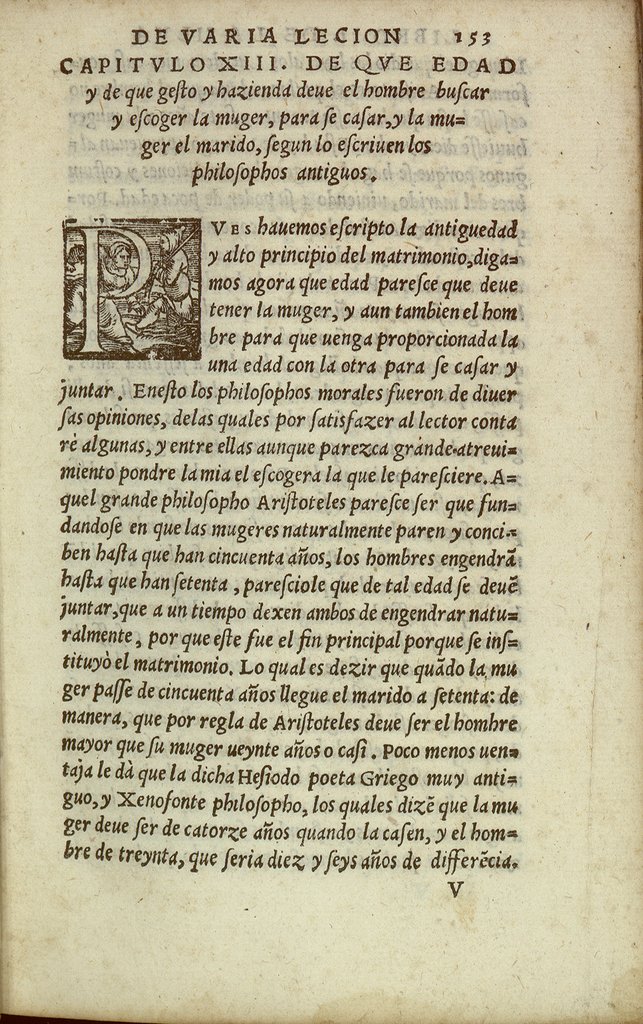 DE VARIA LECION 153
CAPITVLO XIII. DE QVE EDAD
y de que geſto y hazienda deue el hombre buſcar
y eſcoger la muger, para ſe caſar, y la mu=
ger el marido, ſegun lo eſcriuen los
philoſophos antiguos.
PVES hauemos eſcripto la antiguedad
y alto principio del matrimonio, diga=
mos agora que edad pareſce que deue
tener la muger, y aun tambien el hom
bre para que uenga proporcionada la
una edad con la otra para ſe caſar y
juntar. Eneſto los philoſophos morales fueron de diuer
ſas opiniones, delas quales por ſatisfazer al lector conta
rè algunas, y entre ellas aunque parezca gránde atreui=
miento pondre la mia el eſcogera la que le pareſciere. A=
quel grande philoſopho Ariſtoteles pareſce ſer que fun=
dandoſe en que las mugeres naturalmente paren y conci=
ben haſta que han cincuenta años, los hombres engendrã
haſta que han ſetenta, pareſciole que de tal edad ſe deuẽ
juntar, que a un tiempo dexen ambos de engendrar natu=
ralmente, por que eſte fue el fin principal porque ſe inſ=
tituyò el matrimonio. Lo qual es dezir que quãdo la mu
ger paſſe de cincuenta años llegue el marido a ſetenta: de
manera, que por regla de Ariſtoteles deue ſer el hombre
mayor que ſu muger ueynte años o caſi. Poco menos uen=
taja le dà que la dicha Heſiodo poeta Griego muy anti=
guo, y Xenofonte philoſopho, los quales dizẽ que la mu
ger deue ſer de catorze años quando la caſen, y el hom=
bre de treynta, que ſeria diez y ſeys años de differẽcia.
V